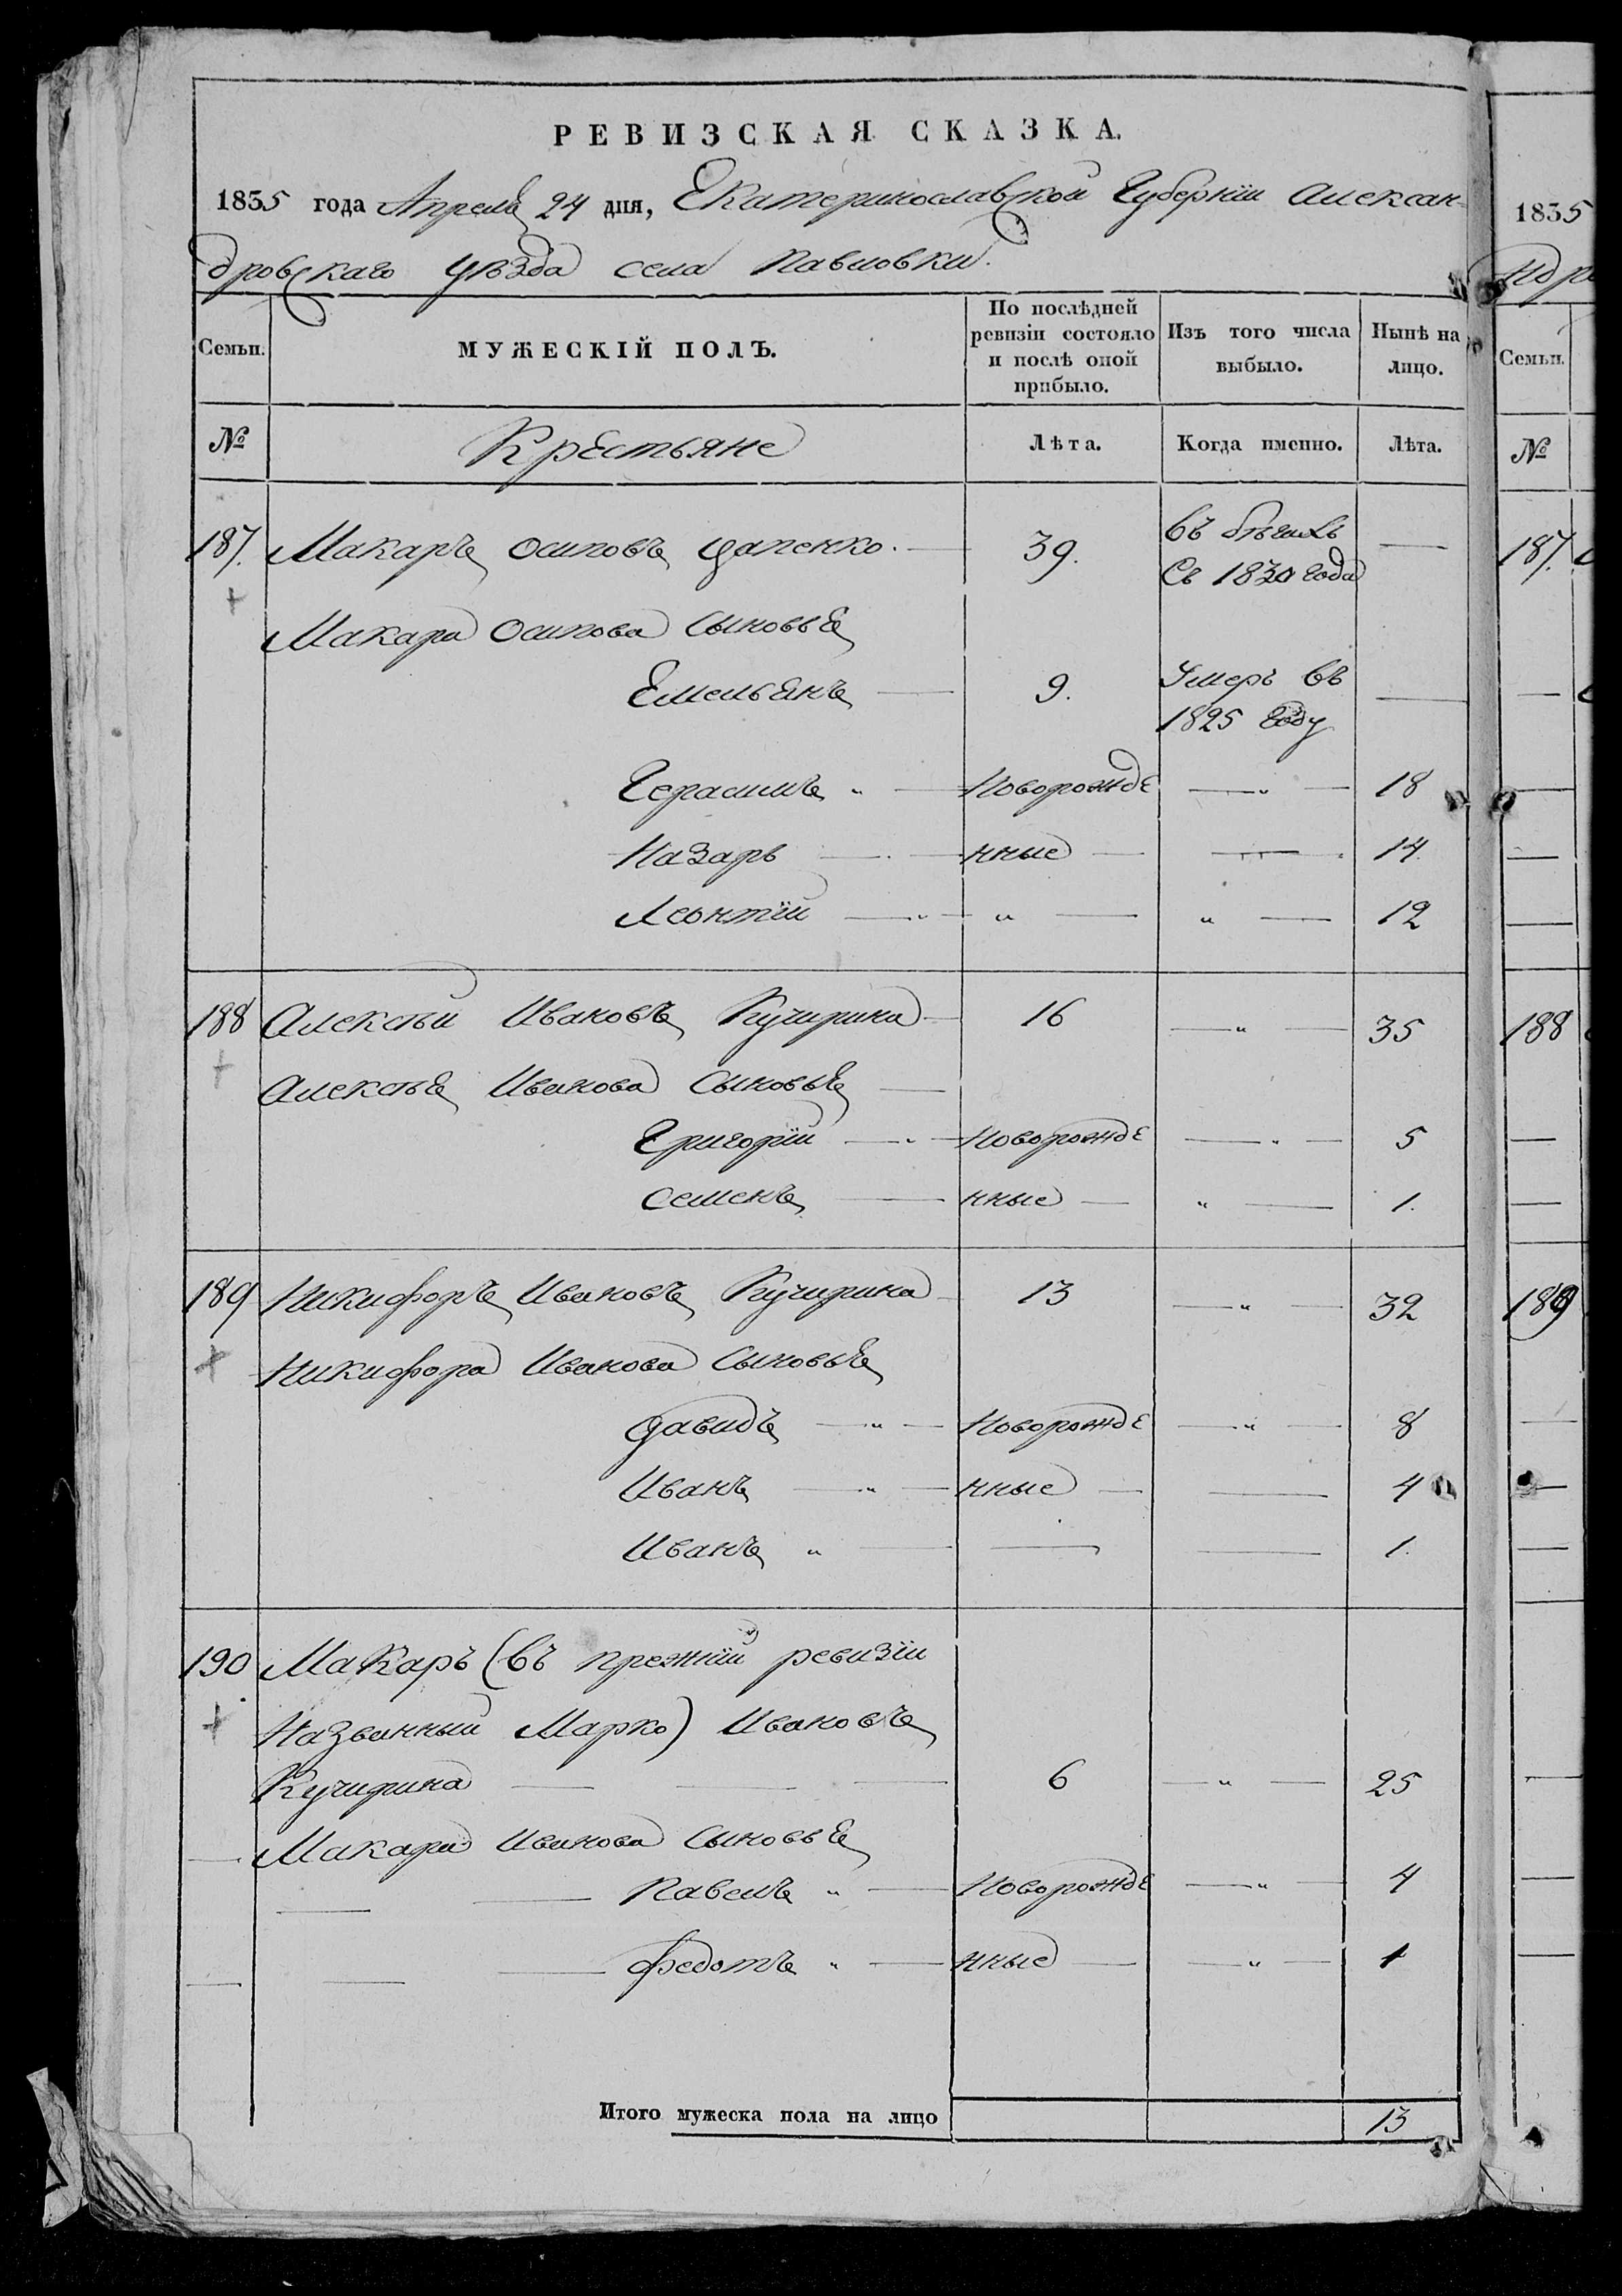 РЕВИЗСКАЯ СКАЗКА.
1835 года Апреля 24 дня, Екатеринославской Губернїи Алексан-
дровскаго Уѣзда села Павловки.
Семьи. МУЖЕСКІЙ ПОЛЪ. По послѣдней ревизіи состояло и послѣ оной прибыло. Изъ того числа выбыло. Нынѣ на лицо.
№ Крестьяне Лѣта. Когда именно. Лѣта.
187. Макаръ Осиповъ Цапенко. — 39. въ бѣгахъ —
Съ 1830 года
Макара Осипова Сыновья
Емельянъ — 9. Умеръ въ —
1825 году
Герасимъ „ — Новорожде — „ — 18
Назаръ — . — нные — — 14.
Леонтїй — „ — „ — „ — 12
188 Алексѣй Ивановъ Кучирина — 16 — „ — 35
Алексѣя Иванова Сыновья —
Григорїй — „ — Новорожде — „ — 5
Семенъ — нные — „ — 1.
189 Никифоръ Ивановъ Кучирина — 13 — „ — 32
Никифора Иванова Сыновья
Давидъ — „ — Новорожде — „ — 8
Иванъ — „ — нные — — 4
Иванъ „ — — — 1.
190 Макаръ (въ прежнїй ревизїи
Названный Марко) Ивановъ
Кучирина — — — 6 — „ — 25
Макара Иванова Сыновья
— — Павелъ „ — Новорожде — „ — 4
— — — Федотъ „ — нные — „ — 1
Итого мужеска пола на лицо 13
1835
Семьи.
№
187.
188
189